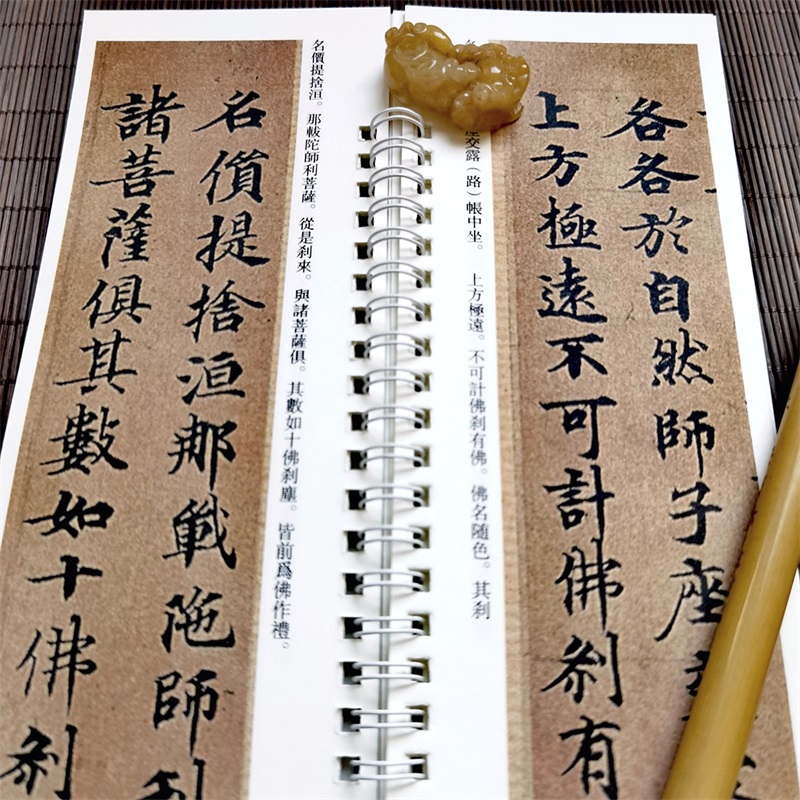 各各於自然師子座
上方極遠不可計佛刹有
座交露（路）帳中坐。 上方極遠。不可計佛刹有佛。佛名随色。其刹
名價提捨洹。那軷陀師利菩薩。從是刹來。與諸菩薩俱。其數如十佛刹塵。皆前爲佛作禮。
名價提捨洹那軷陁師利
諸菩薩俱其數如十佛刹